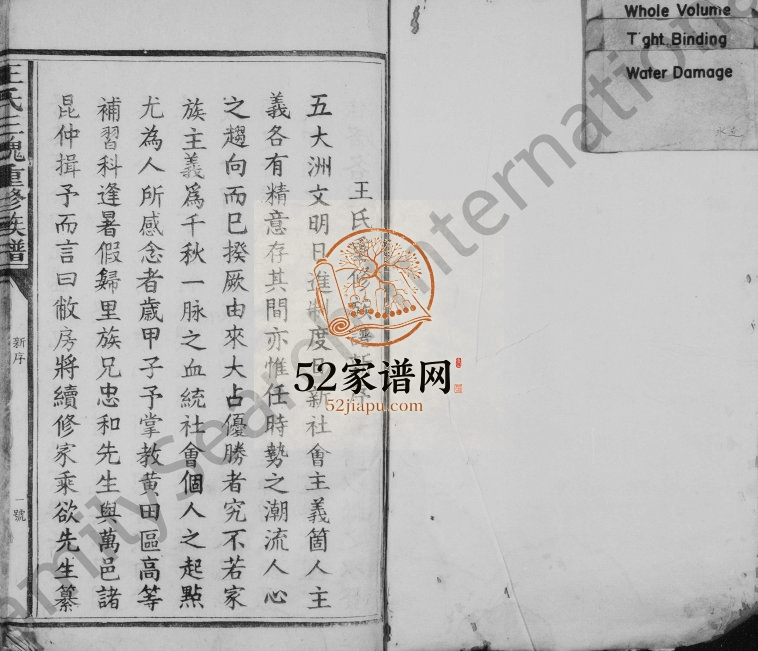 Whole Volume
Tight Binding
Water Damage
王氏重修族譜新序
五大洲文明日進制度日新社會主義箇人主
義各有精意存其間亦惟任時勢之潮流人心
之趨向而已揆厥由來大占優勝者究不若家
族主義爲千秋一脉之血統社會個人之起點
尤為人所感念者歲甲子予掌教黃田區高等
補習科逢暑假歸里族兄忠和先生與萬邑諸
昆仲揖予而言曰敝房將續修家乘欲先生纂
王氏三槐重修族譜
新序
一號
52家谱网
52jiapu.com
FamilySearch International